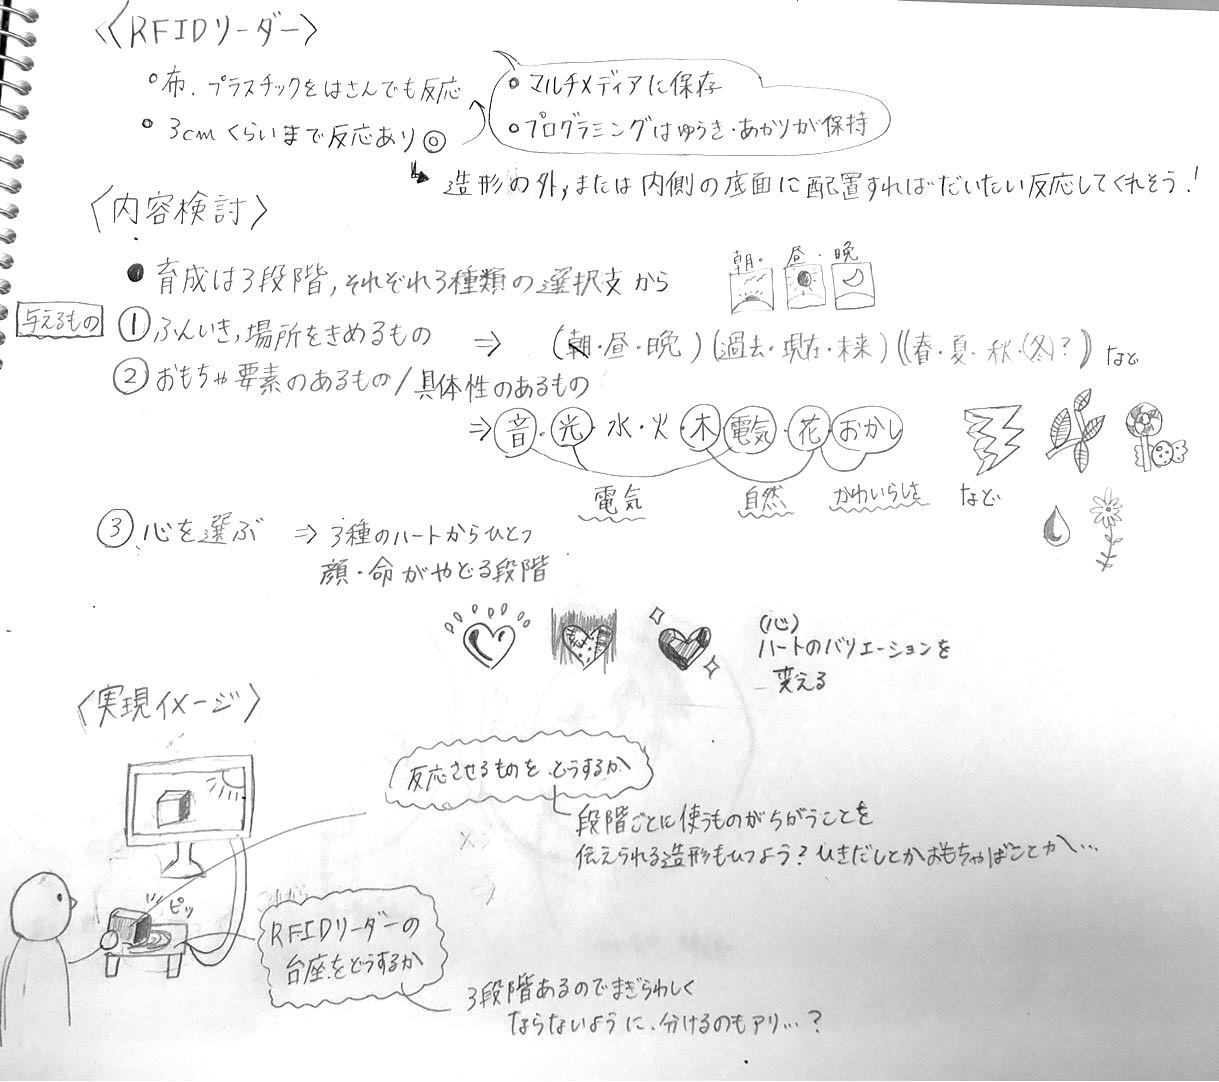 《RFIDリーダー》
○布、プラスチックをはさんでも反応
○3cmくらいまで反応あり◎
○マルチメディアに保存
○プログラミングはゆうき・あかりが保持
↳造形の外,または内側の底面に配置すればだいたい反応してくれそう!
〈内容検討〉
●育成は3段階,それぞれ3種類の選択支から
朝・昼・晩
与えるもの
①ふんいき,場所をきめるもの ⇒ (朝・昼・晩)(過去・現在・未来)((春・夏・秋・(冬)?)) など
②おもちゃ要素のあるもの/具体性のあるもの
⇒音・光・水・火・木・電気・花・おかし
電気 自然 かわいらしさ など
③心を選ぶ ⇒3種のハートからひとつ
顔・命がやどる段階
(心)
ハートのバリエーションを
変える
〈実現イメージ〉
反応させるものを、どうするか
段階ごとに使うものがちがうことを
伝えられる造形もひつよう?ひきだしとかおもちゃばことか…
ピッ
RFIDリーダーの
台座をどうするか
3段階あるのでまぎらわしく
ならないように、分けるのもアリ…?